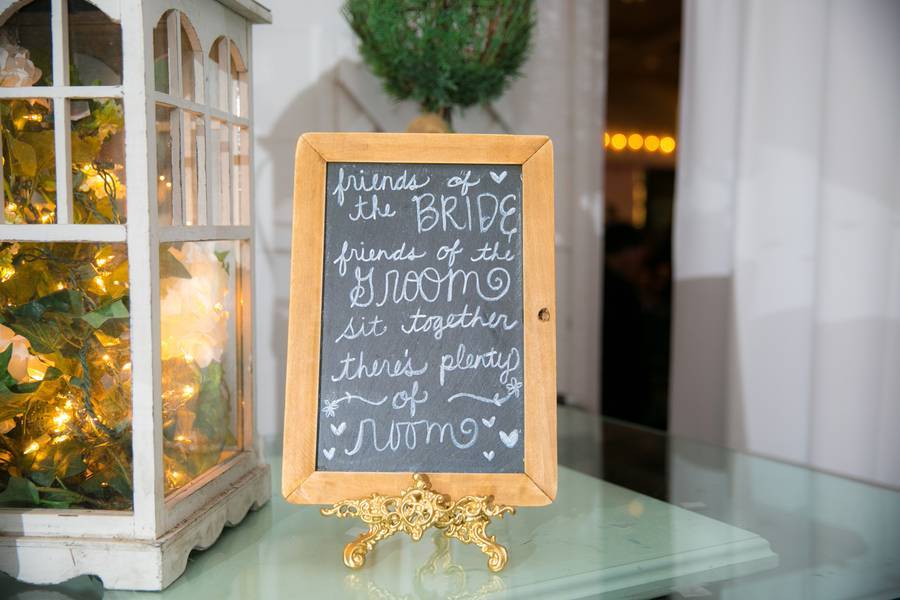 friends of
the BRIDE
friends of the
Groom
sit together
there's plenty
of
room